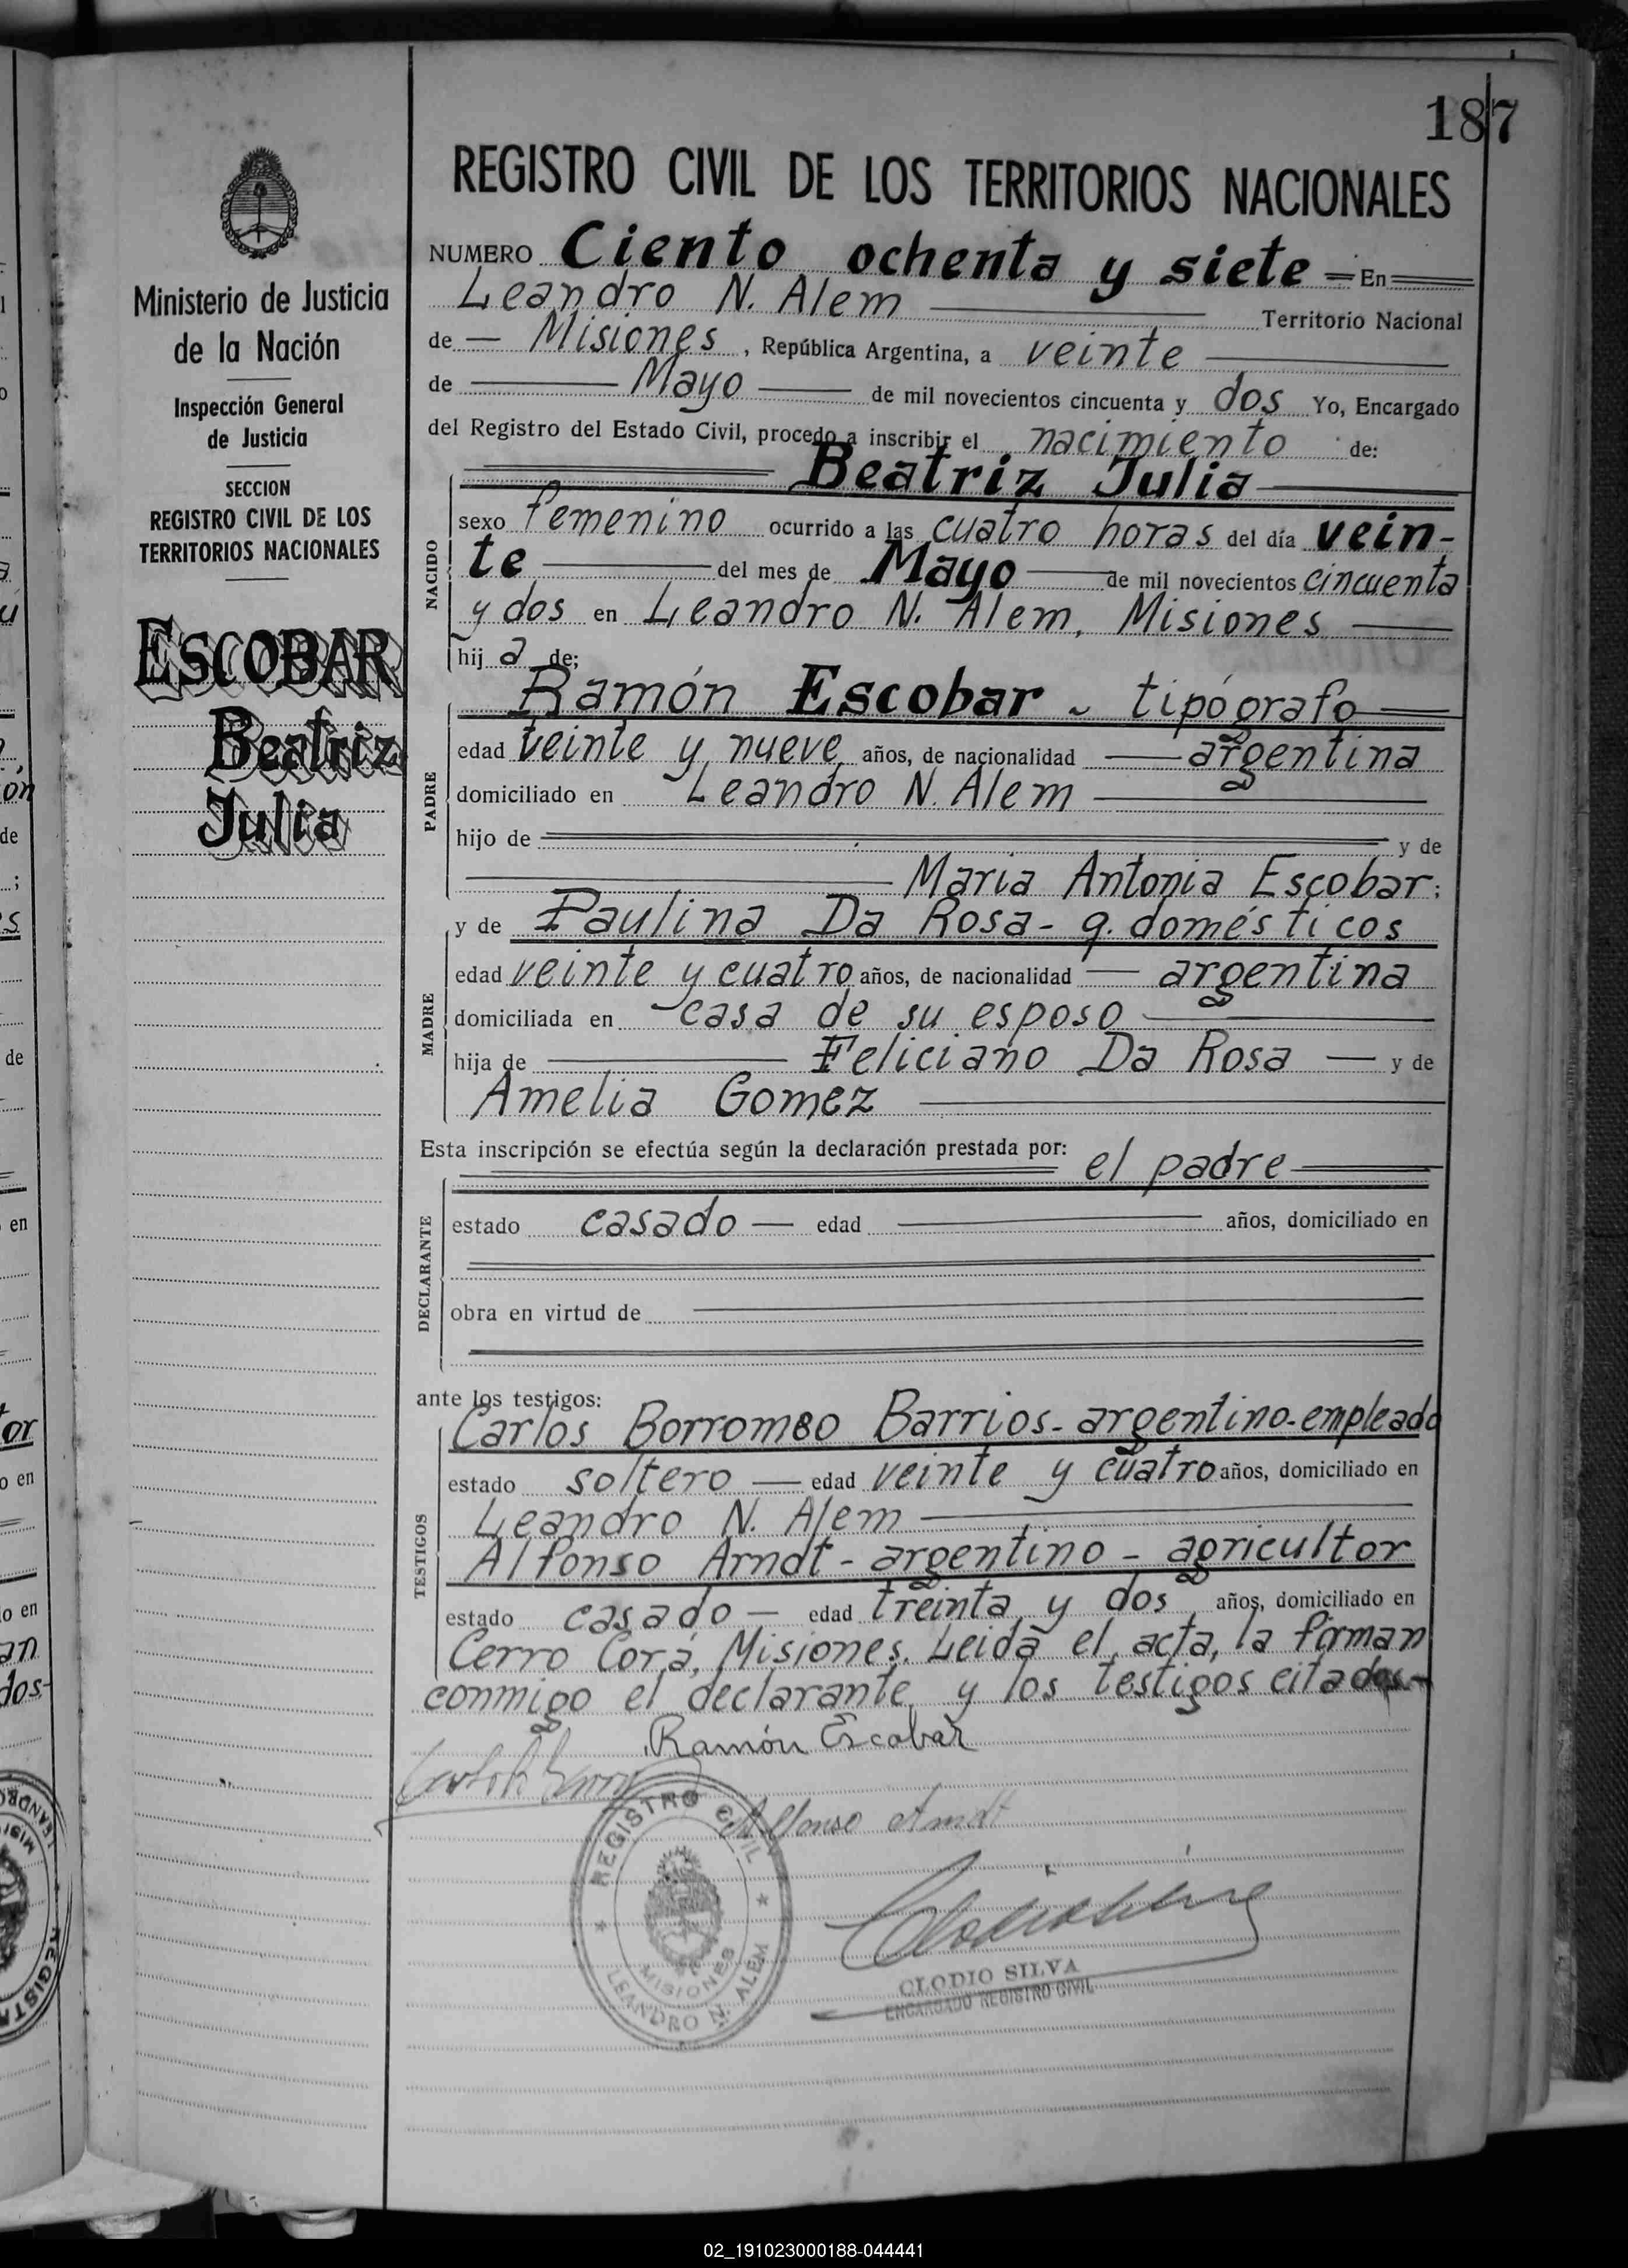 187
REGISTRO CIVIL DE LOS TERRITORIOS NACIONALES
Ministerio de Justicia
de la Nación
Inspección General
de Justicia
SECCION
REGISTRO CIVIL DE LOS
TERRITORIOS NACIONALES
ESCOBAR
Beatriz
Julia
NUMERO Ciento ochenta y siete = En
Leandro N. Alem Territorio Nacional
de Misiones, República Argentina, a veinte
de Mayo de mil novecientos cincuenta y dos Yo, Encargado
del Registro del Estado Civil, procedo a inscribir el nacimiento de:
Beatriz Julia
NACIDO
sexo femenino ocurrido a las cuatro horas del día vein-
te del mes de Mayo de mil novecientos cincuenta
y dos en Leandro N. Alem, Misiones
hija de;
PADRE
Ramón Escobar - tipógrafo
edad veinte y nueve años, de nacionalidad argentina
domiciliado en Leandro N. Alem
hijo de y de
Maria Antonia Escobar;
MADRE
y de Paulina Da Rosa - q. domésticos
edad veinte y cuatro años, de nacionalidad argentina
domiciliada en casa de su esposo
hija de Feliciano Da Rosa y de
Amelia Gomez
Esta inscripción se efectúa según la declaración prestada por:
el padre
DECLARANTE
estado casado edad años, domiciliado en
obra en virtud de
ante los testigos:
TESTIGOS
Carlos Borromeo Barrios - argentino - empleado
estado soltero edad veinte y cuatro años, domiciliado en
Leandro N. Alem
Alfonso Arndt - argentino - agricultor
estado casado edad treinta y dos años, domiciliado en
Cerro Corá, Misiones. Leida el acta, la firman
conmigo el declarante y los testigos citados.-
Ramón Escobar
Alfonso Arndt
REGISTRO CIVIL
MISIONES
LEANDRO N. ALEM
CLODIO SILVA
ENCARGADO REGISTRO CIVIL
02_191023000188-044441